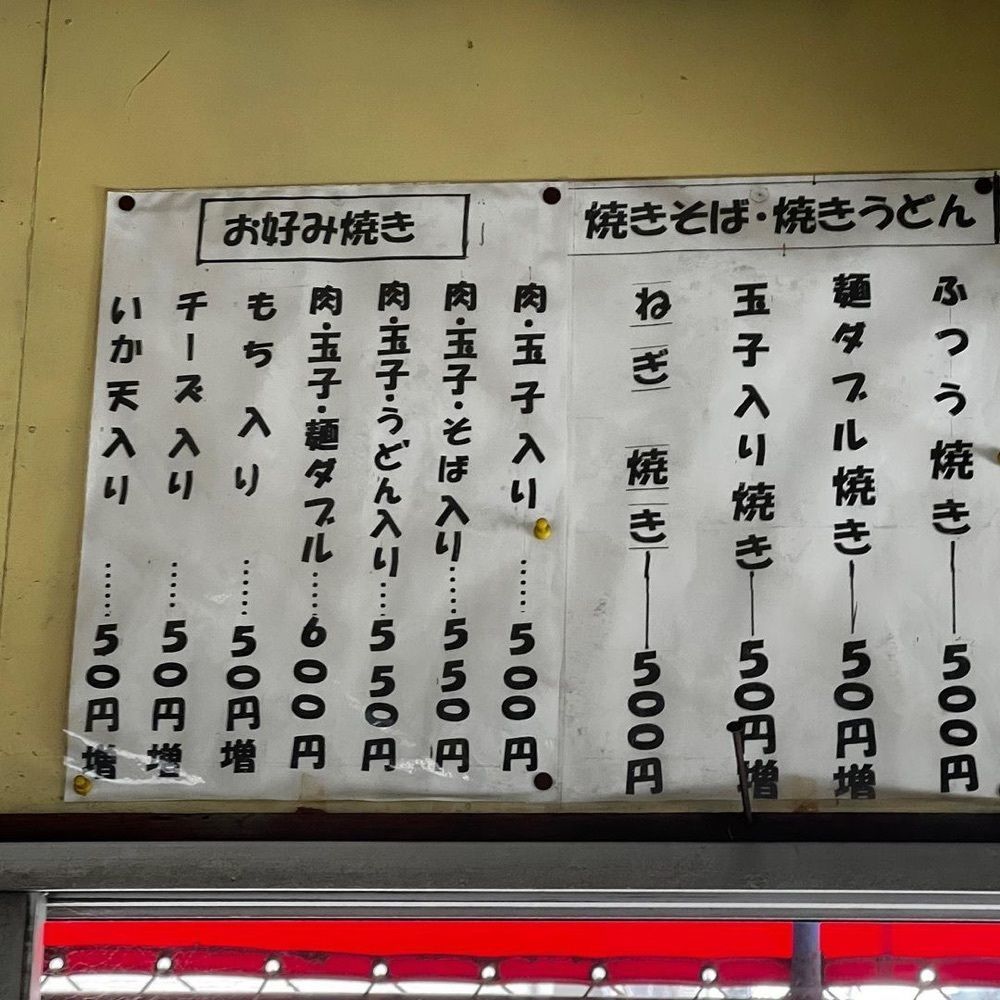 焼きそば・焼きうどん
ふつう焼き 500円
麺ダブル焼き 50円増
玉子入り焼き 50円増
ねぎ焼き 500円
お好み焼き
肉・玉子入り……500円
肉・玉子・そば入り……550円
肉・玉子・うどん入り……550円
肉・玉子・麺ダブル……600円
もち入り……50円増
チーズ入り……50円増
いか天入り……50円増